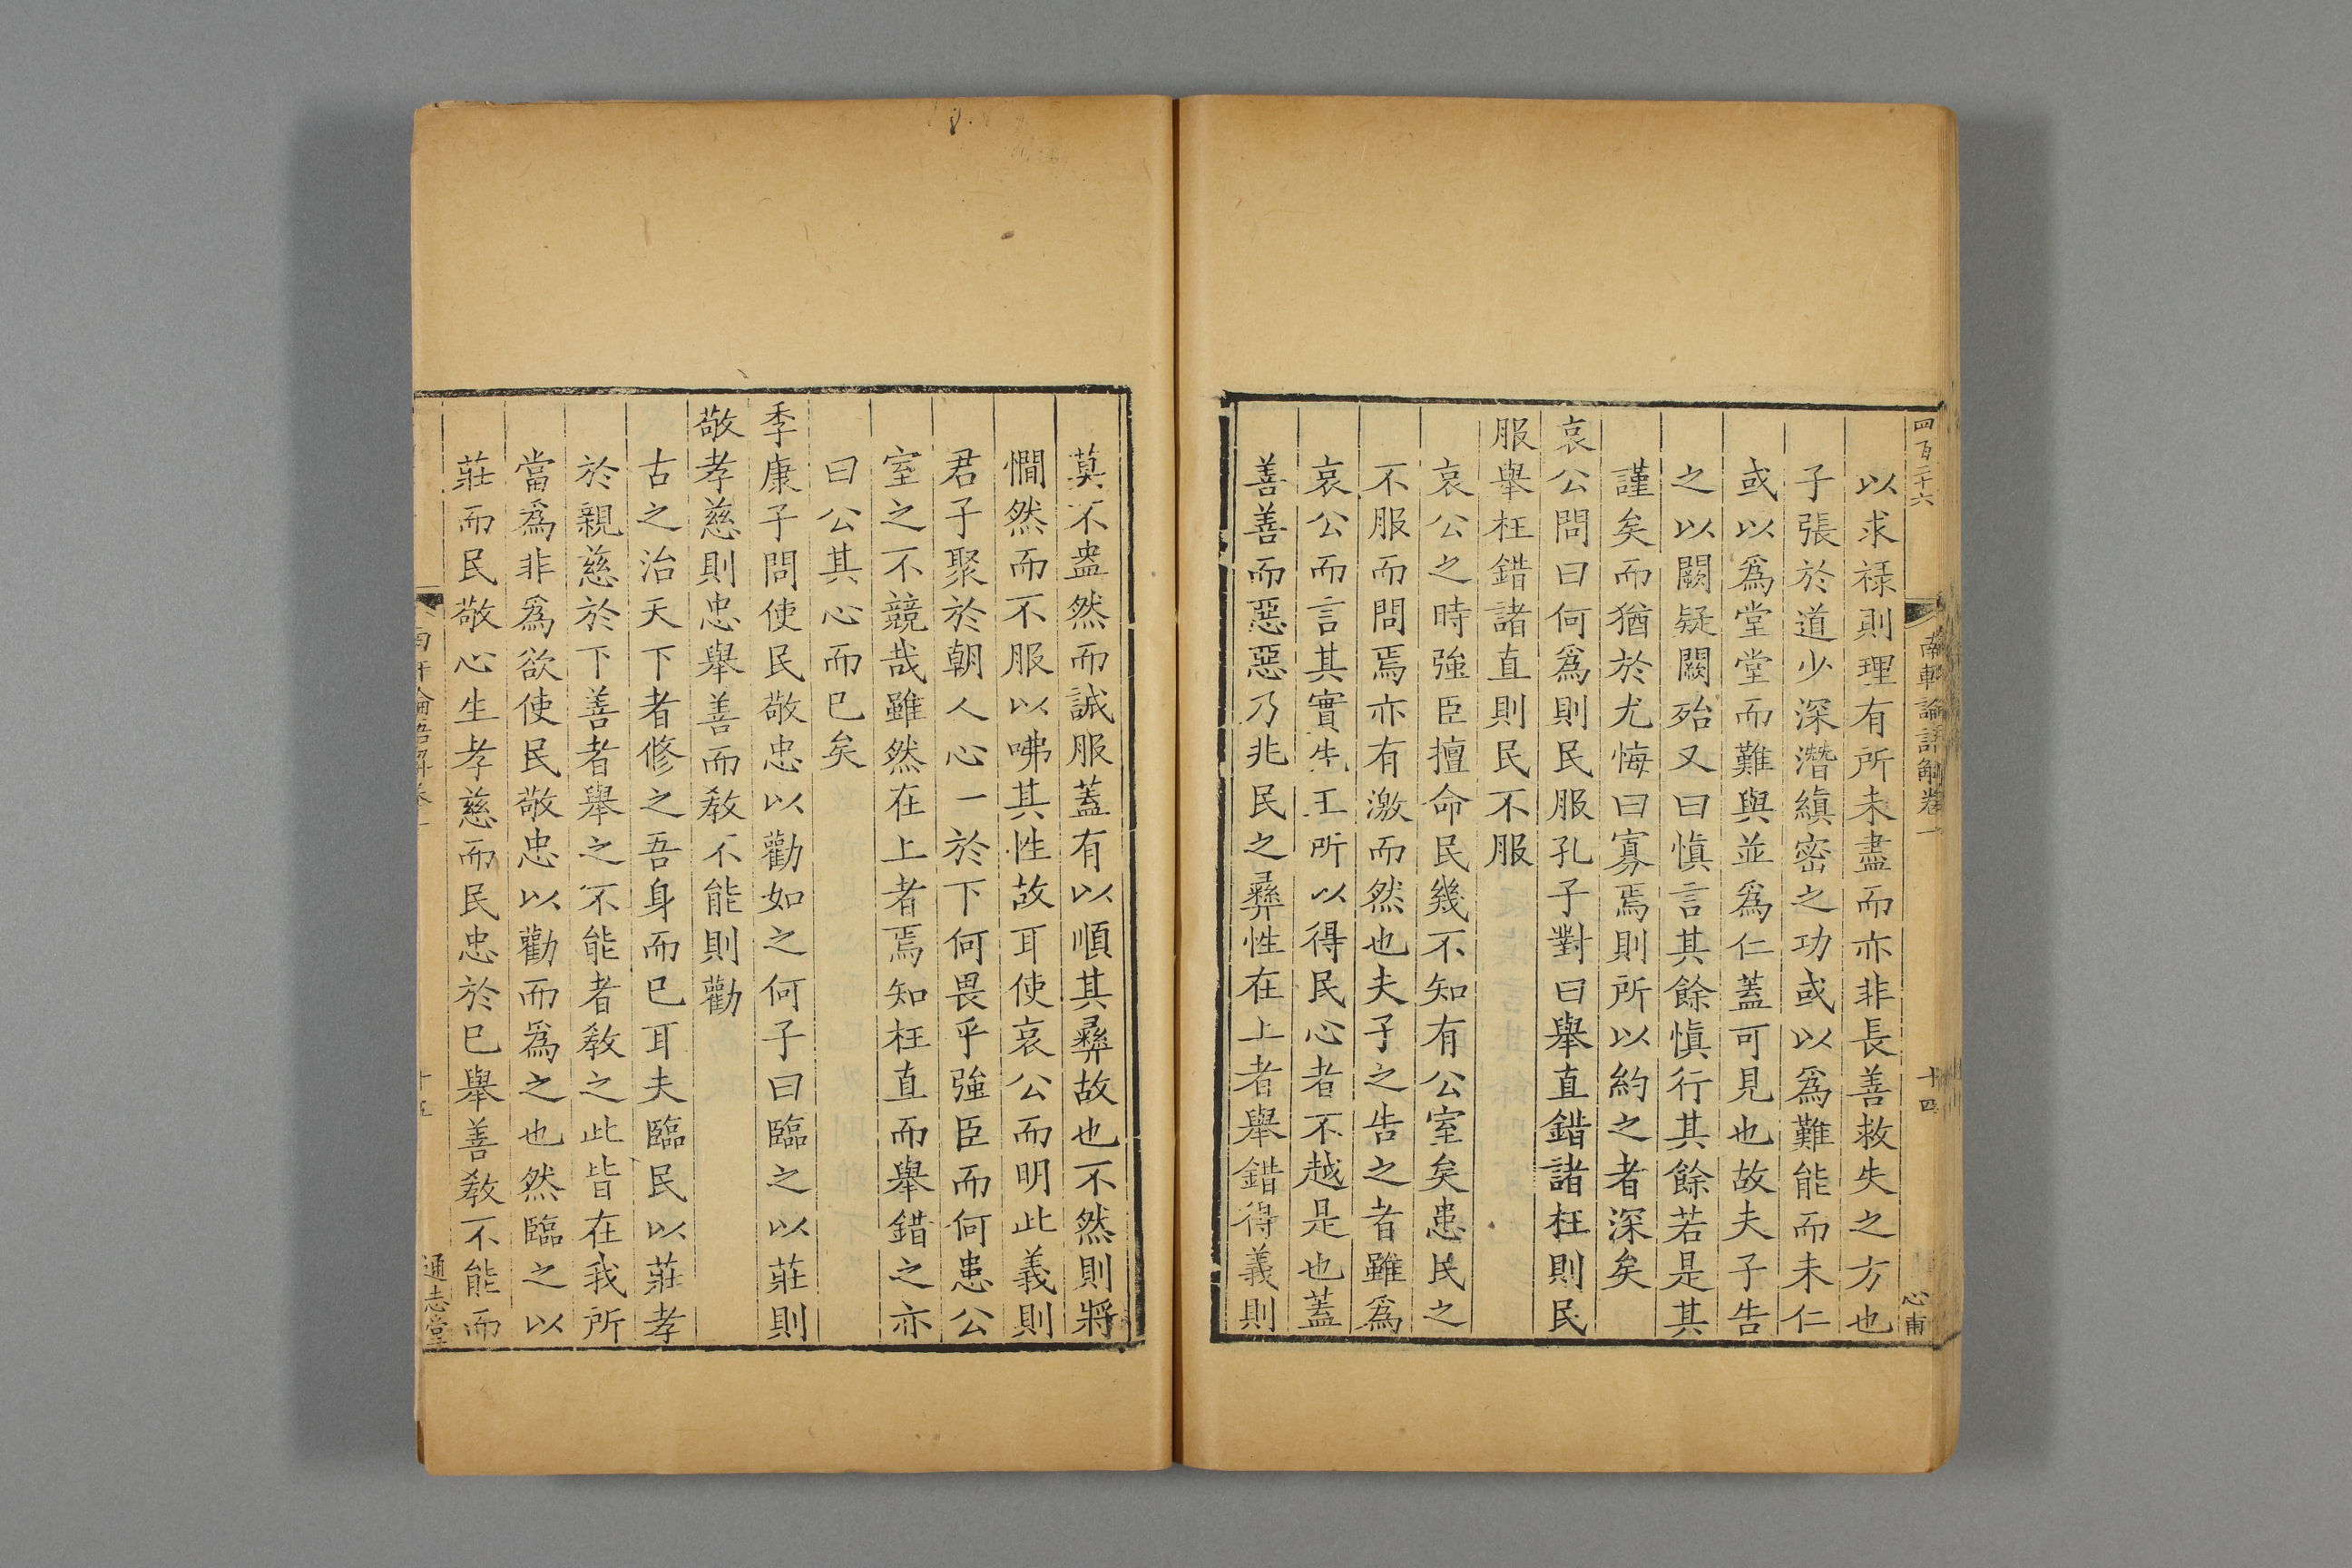 四百二十六
南軒論語解卷一
十四
心甫
以求祿則理有所未盡而亦非長善救失之方也
子張於道少深潛縝密之功或以爲難能而未仁
或以爲堂堂而難與並爲仁蓋可見也故夫子告
之以闕疑闕殆又曰愼言其餘愼行其餘若是其
謹矣而猶於尤悔曰寡焉則所以約之者深矣
哀公問曰何爲則民服孔子對曰舉直錯諸枉則民
服舉枉錯諸直則民不服
哀公之時強臣擅命民幾不知有公室矣患民之
不服而問焉亦有激而然也夫子之告之者雖爲
哀公而言其實先王所以得民心者不越是也蓋
善善而惡惡乃兆民之彝性在上者舉錯得義則
莫不盎然而誠服蓋有以順其彝故也不然則將
憪然而不服以咈其性故耳使哀公而明此義則
君子聚於朝人心一於下何畏乎強臣而何患公
室之不競哉雖然在上者焉知枉直而舉錯之亦
曰公其心而已矣
季康子問使民敬忠以勸如之何子曰臨之以莊則
敬孝慈則忠舉善而敎不能則勸
古之治天下者修之吾身而已耳夫臨民以莊孝
於親慈於下善者舉之不能者敎之此皆在我所
當爲非爲欲使民敬忠以勸而爲之也然臨之以
莊而民敬心生孝慈而民忠於已舉善敎不能而
十五
通志堂